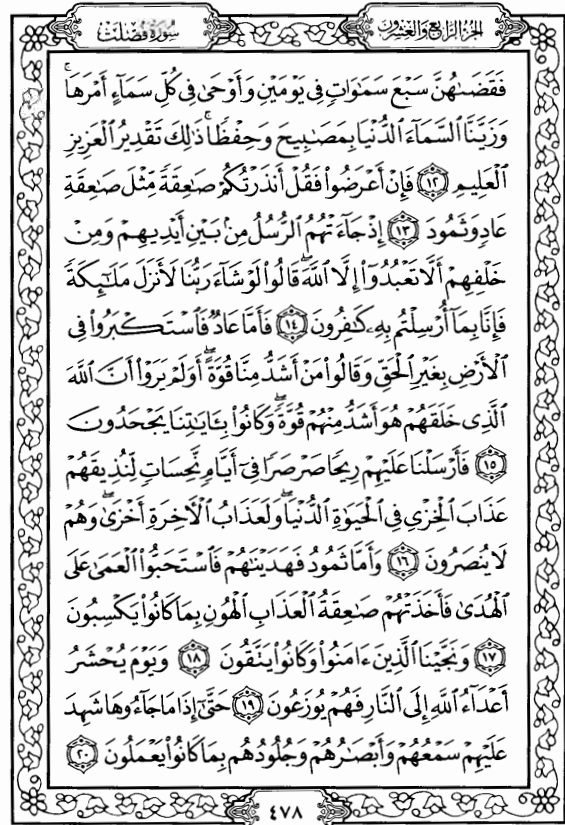 الجزء الرابع والعشرون
سورة فصلت
فَقَضَىٰهُنَّ سَبْعَ سَمَٰوَاتٍ فِي يَوْمَيْنِ وَأَوْحَىٰ فِي كُلِّ سَمَآءٍ أَمْرَهَا ۚ
وَزَيَّنَّا ٱلسَّمَآءَ ٱلدُّنْيَا بِمَصَٰبِيحَ وَحِفْظًا ۚ ذَٰلِكَ تَقْدِيرُ ٱلْعَزِيزِ
ٱلْعَلِيمِ ١٢ فَإِنْ أَعْرَضُوا۟ فَقُلْ أَنذَرْتُكُمْ صَٰعِقَةً مِّثْلَ صَٰعِقَةِ
عَادٍ وَثَمُودَ ١٣ إِذْ جَآءَتْهُمُ ٱلرُّسُلُ مِنۢ بَيْنِ أَيْدِيهِمْ وَمِنْ
خَلْفِهِمْ أَلَّا تَعْبُدُوٓا۟ إِلَّا ٱللَّهَ ۖ قَالُوا۟ لَوْ شَآءَ رَبُّنَا لَأَنزَلَ مَلَٰٓئِكَةً
فَإِنَّا بِمَآ أُرْسِلْتُم بِهِۦ كَٰفِرُونَ ١٤ فَأَمَّا عَادٌ فَٱسْتَكْبَرُوا۟ فِي
ٱلْأَرْضِ بِغَيْرِ ٱلْحَقِّ وَقَالُوا۟ مَنْ أَشَدُّ مِنَّا قُوَّةً ۖ أَوَلَمْ يَرَوْا۟ أَنَّ ٱللَّهَ
ٱلَّذِي خَلَقَهُمْ هُوَ أَشَدُّ مِنْهُمْ قُوَّةً ۖ وَكَانُوا۟ بِـَٔايَٰتِنَا يَجْحَدُونَ
١٥ فَأَرْسَلْنَا عَلَيْهِمْ رِيحًا صَرْصَرًا فِيٓ أَيَّامٍ نَّحِسَاتٍ لِّنُذِيقَهُمْ
عَذَابَ ٱلْخِزْيِ فِي ٱلْحَيَوٰةِ ٱلدُّنْيَا ۖ وَلَعَذَابُ ٱلْأَخِرَةِ أَخْزَىٰ ۖ وَهُمْ
لَا يُنصَرُونَ ١٦ وَأَمَّا ثَمُودُ فَهَدَيْنَٰهُمْ فَٱسْتَحَبُّوا۟ ٱلْعَمَىٰ عَلَى
ٱلْهُدَىٰ فَأَخَذَتْهُمْ صَٰعِقَةُ ٱلْعَذَابِ ٱلْهُونِ بِمَا كَانُوا۟ يَكْسِبُونَ
١٧ وَنَجَّيْنَا ٱلَّذِينَ ءَامَنُوا۟ وَكَانُوا۟ يَتَّقُونَ ١٨ وَيَوْمَ يُحْشَرُ
أَعْدَآءُ ٱللَّهِ إِلَى ٱلنَّارِ فَهُمْ يُوزَعُونَ ١٩ حَتَّىٰٓ إِذَا مَا جَآءُوهَا شَهِدَ
عَلَيْهِمْ سَمْعُهُمْ وَأَبْصَٰرُهُمْ وَجُلُودُهُم بِمَا كَانُوا۟ يَعْمَلُونَ ٢٠
٤٧٨